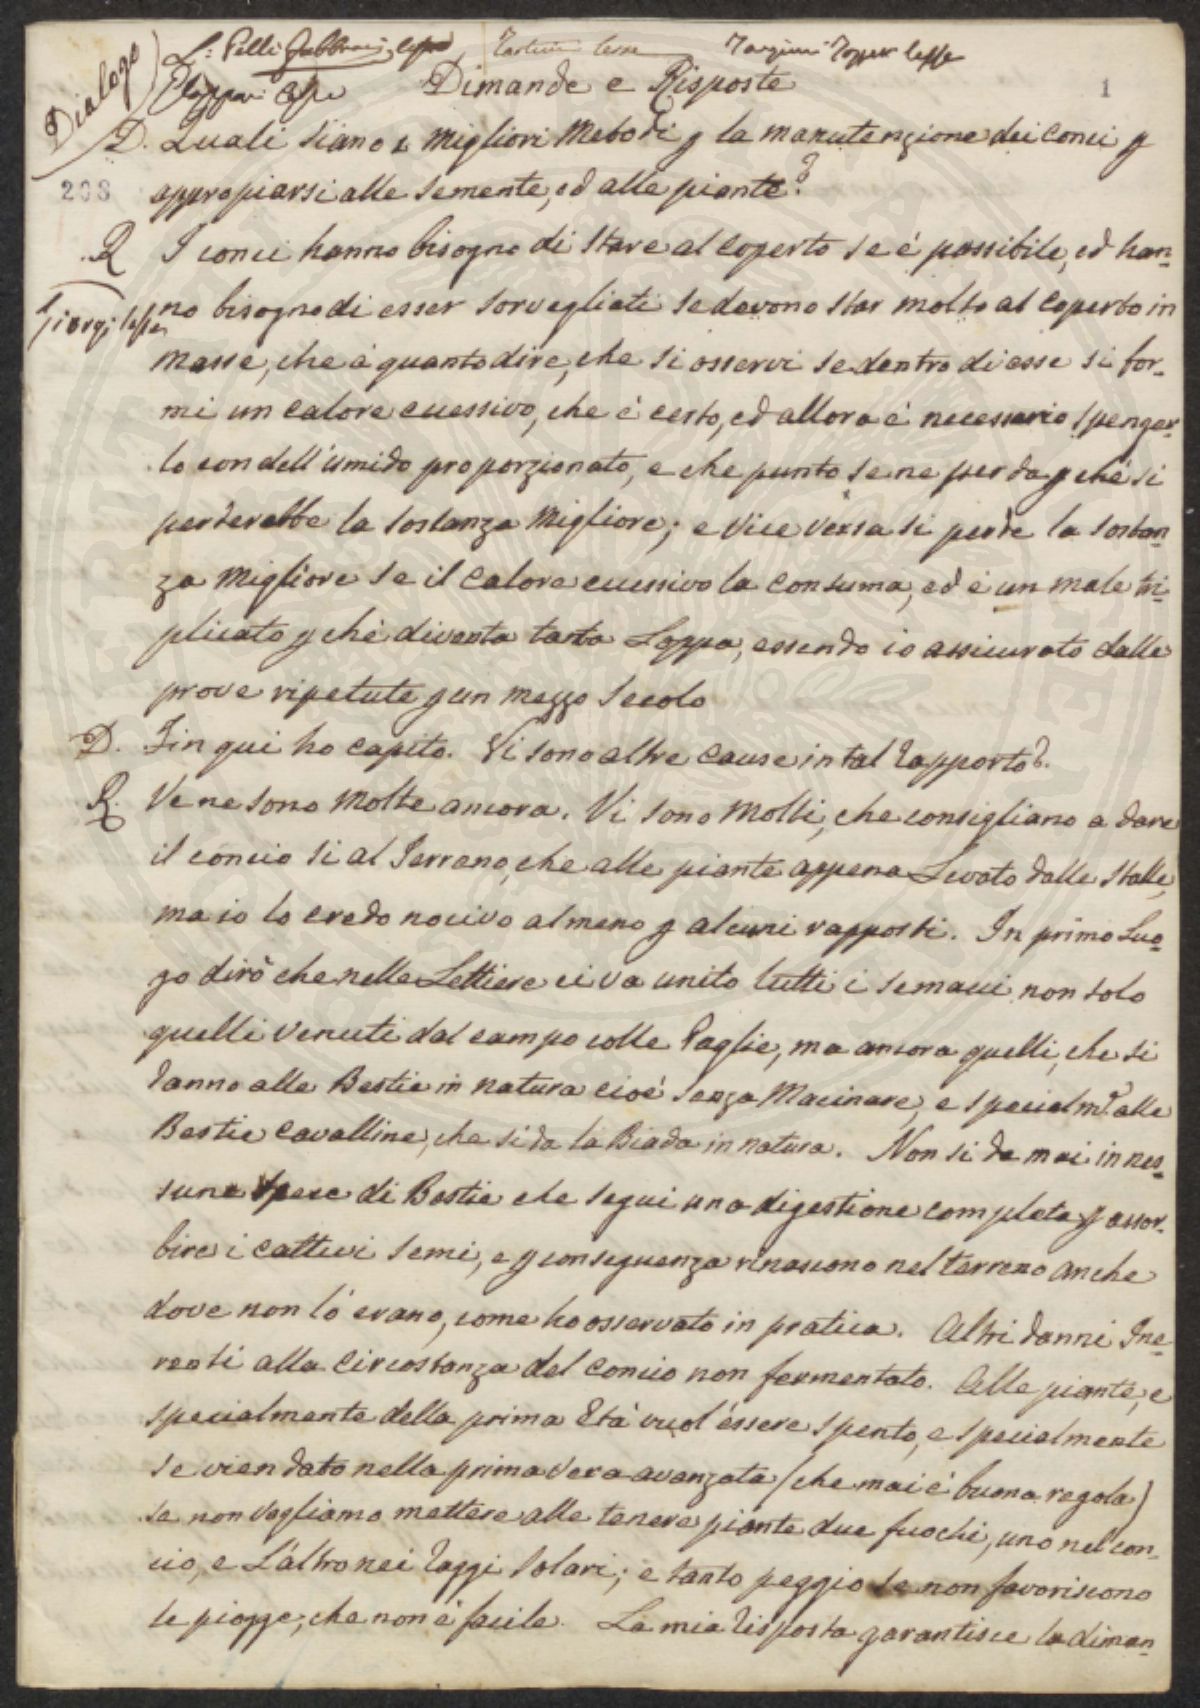 Dialogo
L: Pelli Fabbroni lesse
Tartini lesse
Dimande e Risposte
1
D. Quali siano i migliori Metodi p la manutenzione dei Conci p
208
appropiarsi alle semente, ed alle piante?
R I conci hanno bisogno di stare al coperto se é possibile, ed han-
Giorgi lesse
no bisogno di esser sorvegliati se devono star molto al coperto in
masse, che é quanto dire, che si osservi se dentro di esse si for-
mi un calore eccessivo, che é certo, ed allora é necessario spenger-
lo con dell'umido proporzionato, e che punto se ne perda p chè si
perderebbe la sostanza Migliore; e Vice Versa si perde la sostan-
za Migliore se il calore eccessivo la consuma, ed é un male tri-
plicato p chè diventa tanta Loppa, essendo io assicurato dalle
prove ripetute p un mezzo secolo
D. Fin qui ho capito. Vi sono altre cause in tal rapporto?.
R. Ve ne sono Molte ancora. Vi sono Molti, che consigliano a dare
il concio si al Terreno, che alle piante appena Levato dalle stalle,
ma io lo credo nocivo almeno p alcuni rapporti. In primo Luo-
go dirò che nelle Lettiere ci va unito tutti i semacci non solo
quelli venuti dal campo colle Paglie, ma ancora quelli, che si
danno alle Bestie in natura cioé senza Macinare, e specialm.e alle
Bestie cavalline, che si da la Biada in natura. Non si da mai in nes-
suna spece di Bestie che segui una digestione completa p assor-
bire i cattivi semi, e p conseguenza rinascono nel terreno anche
dove non lo erano, come ho osservato in pratica. Altri danni Ine-
renti alla circostanza del concio non fermentato. Alle piante, e
specialmente della prima Età vuol'éssere spento, e specialmente
se vien dato nella primavera avanzata (che mai é buona regola)
se non vogliamo mettere alle tenere piante due fuochi, uno nel con-
cio, e L'altro nei raggi solari; e tanto peggio se non favoriscono
le piogge, che non é facile. La mia risposta garantisce la diman-